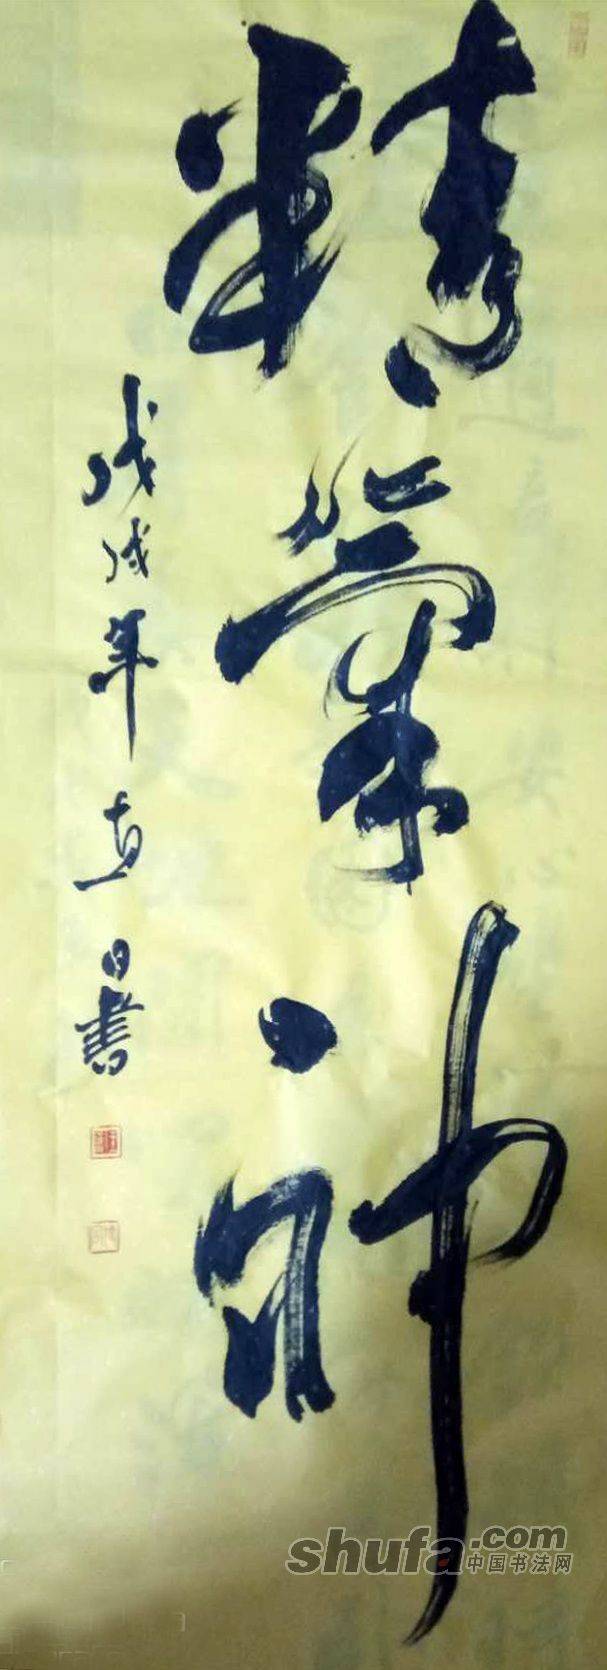 精氣神
戊戌年直日書
shufa.com
中国书法网